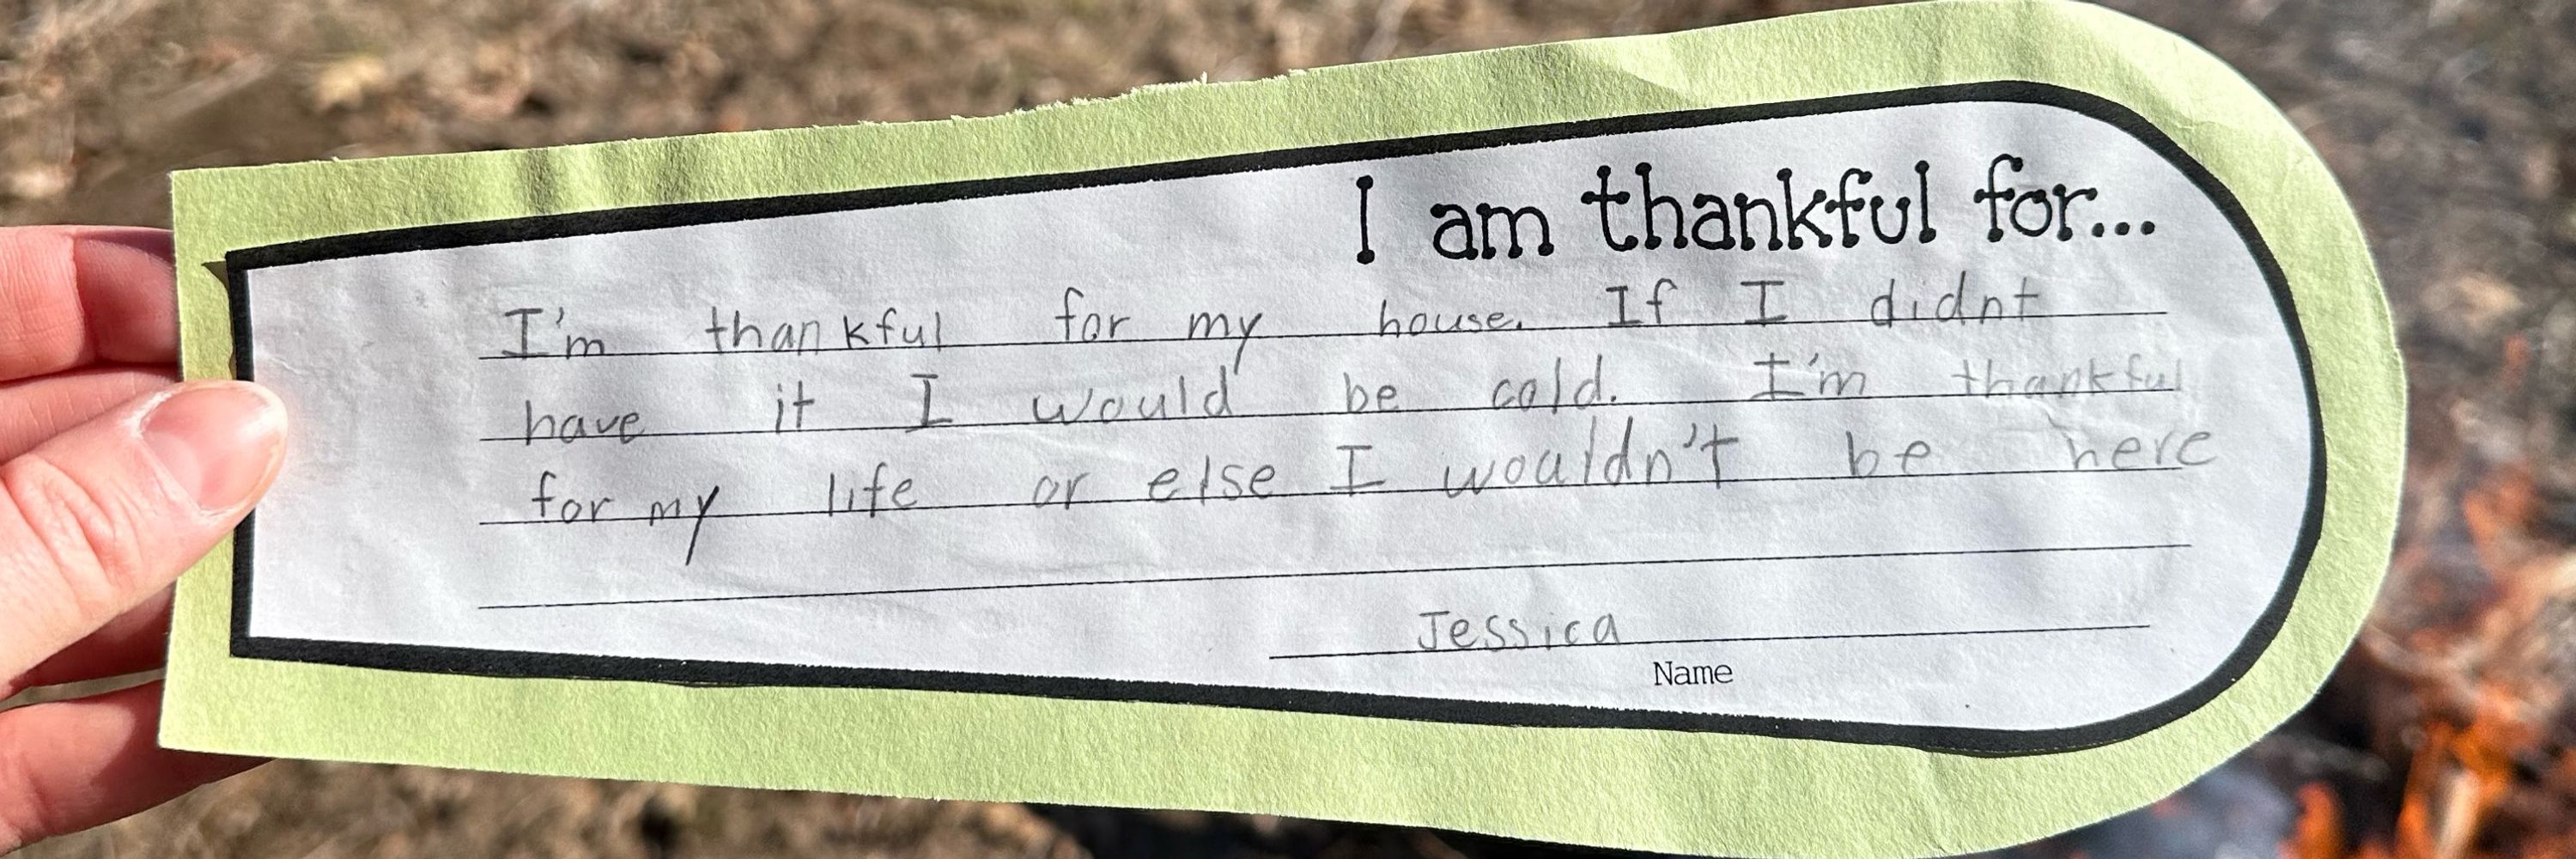 I am thankful for...
I'm thankful for my house. If I didnt
have it I would be cold. I'm thankful
for my life or else I wouldn't be here
Jessica
Name